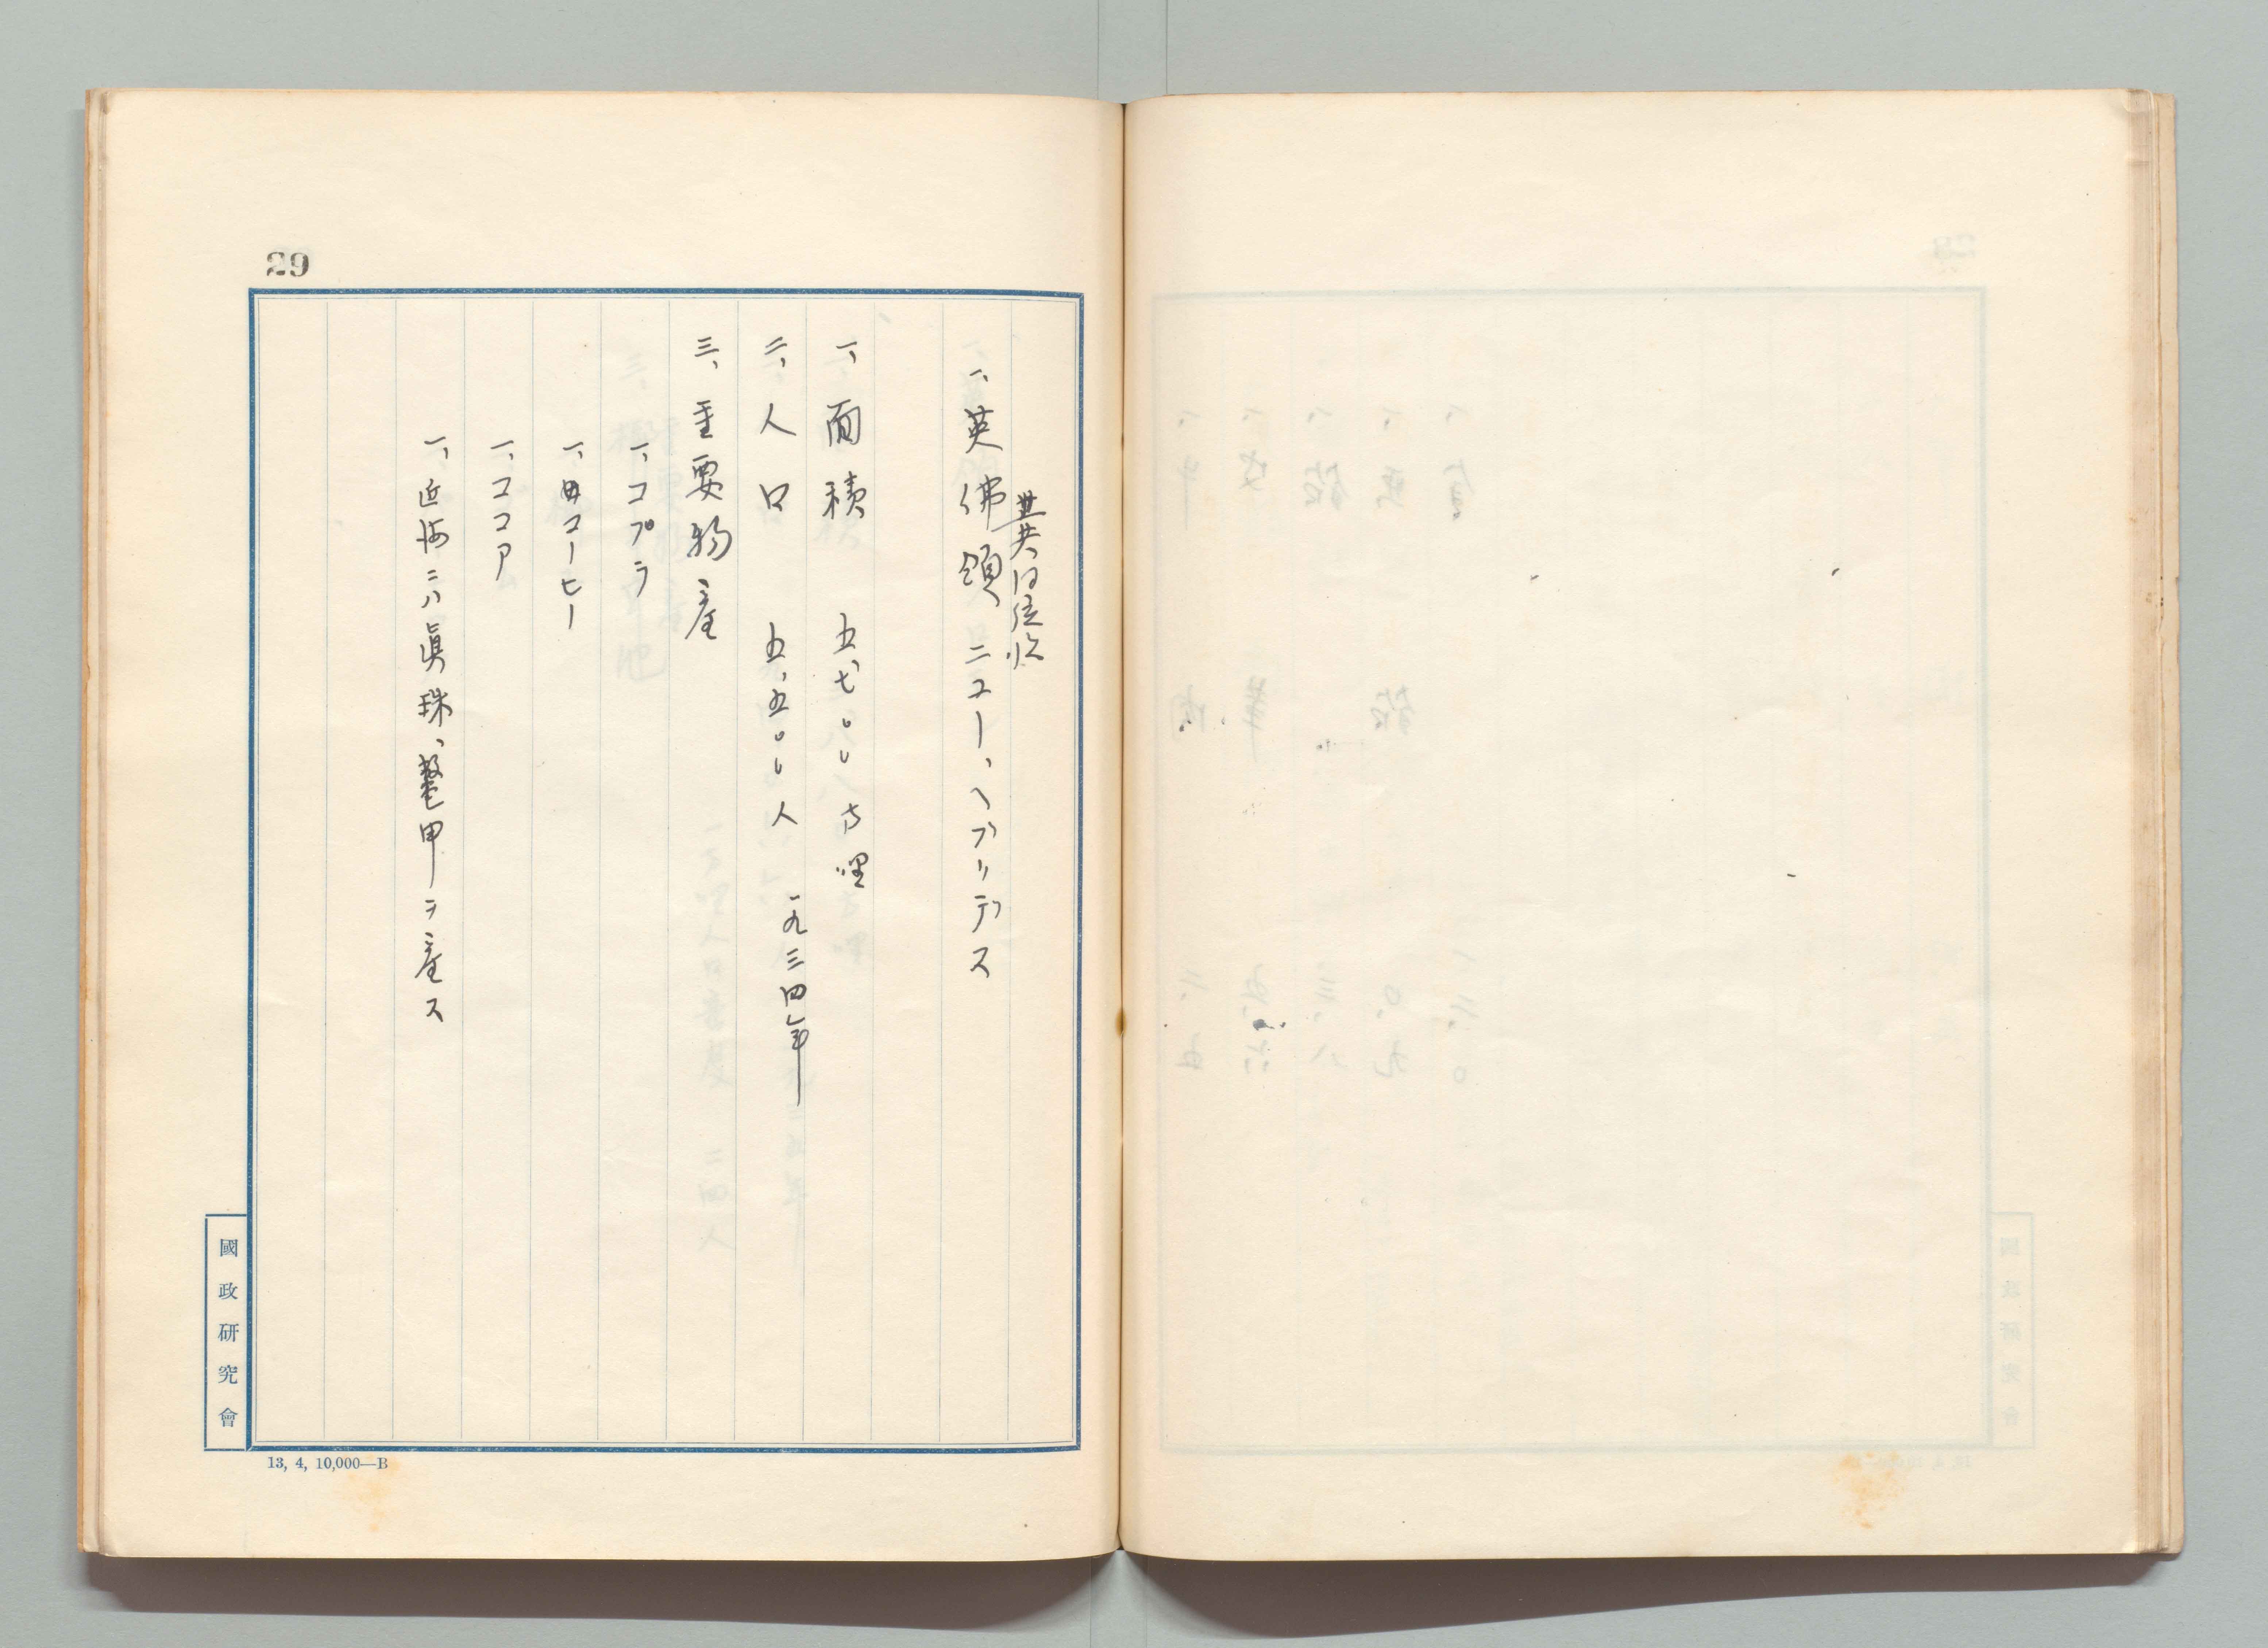 一、英佛領ニユー、ヘブリデス
共同
一、面積　五七〇〇方哩
二、人口　五、五〇〇人　一九三四年
三、重要物産
一、コプラ
一、コーヒー
一、ココア
一、近海ニハ眞珠、鼈甲ヲ産ス
29
國政研究會
13, 4, 10,000—B